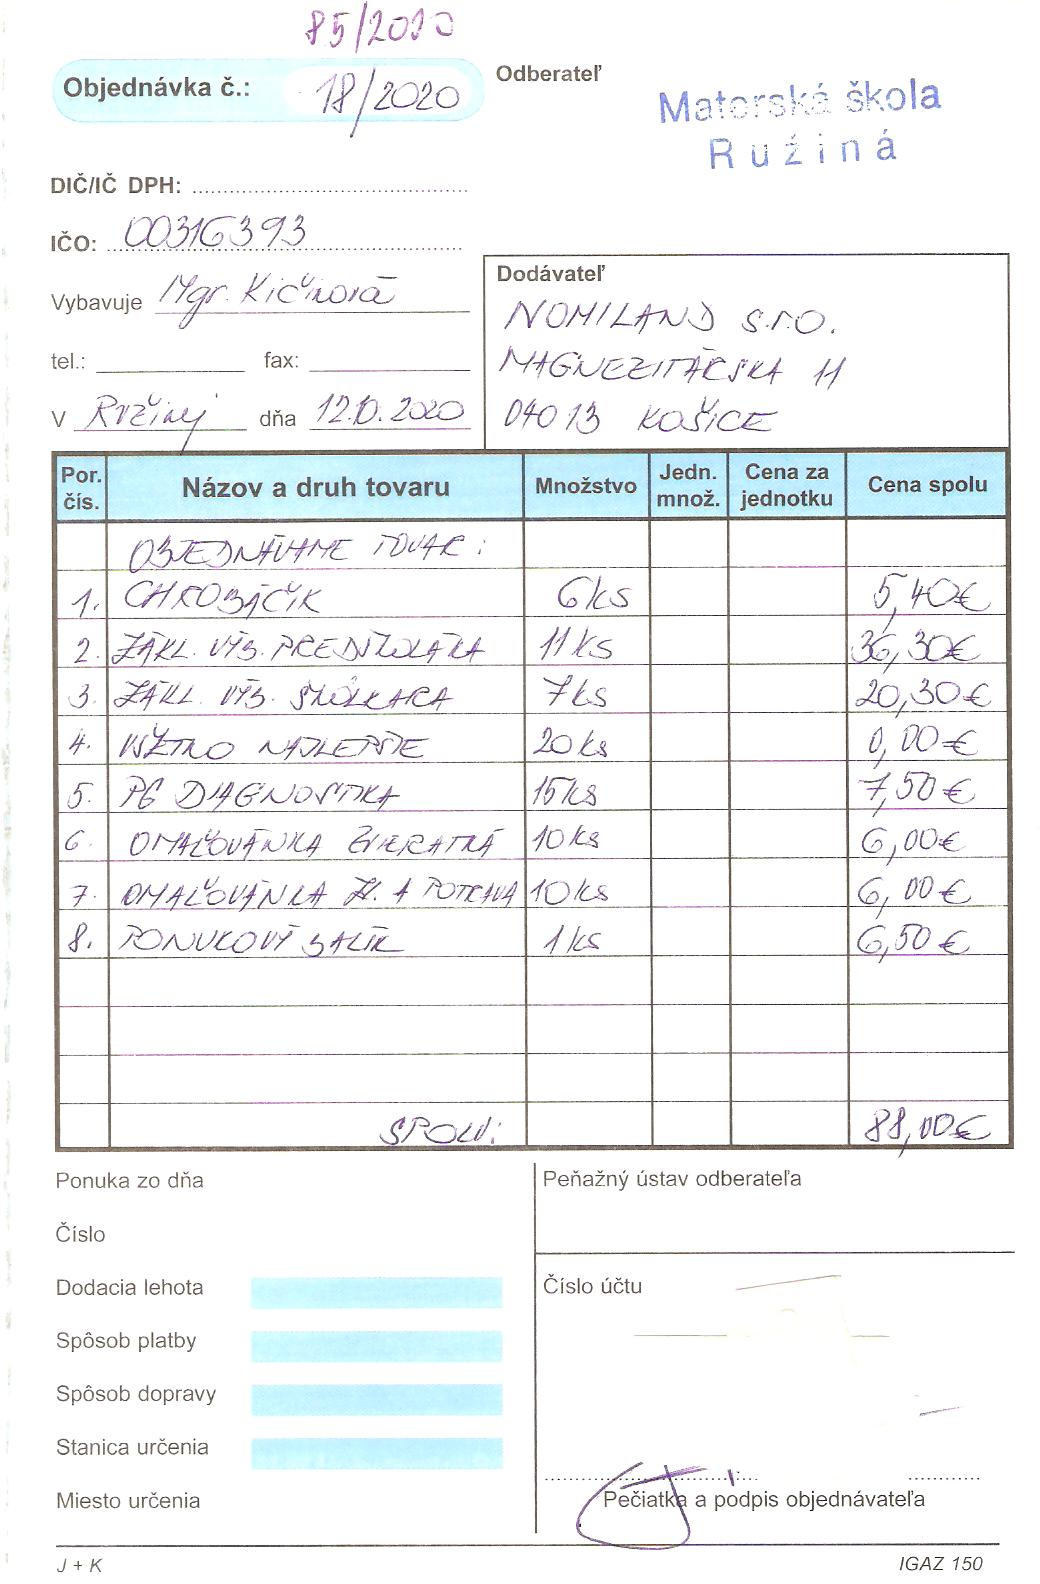 85/2020
Objednávka č.: 18/2020
Odberateľ
Materská škola
Ružiná
DIČ/IČ DPH:
IČO: 00316393
Vybavuje Mgr. Kičinová
tel.: fax:
V Ružinej dňa 12.10.2020
Dodávateľ
NOMILAND s.r.o.
MAGNEZITÁRSKA 11
04013 KOŠICE
Por. čís. Názov a druh tovaru Množstvo Jedn. množ. Cena za jednotku Cena spolu
OBJEDNÁVAME TOVAR:
1. CHROBÁČIK 6ks 5,40€
2. ZÁKL. VÝB. PREDŠKOLÁKA 11ks 36,30€
3. ZÁKL. VÝB. ŠKÔLKARA 7ks 20,30€
4. VŠETKO NAJLEPŠIE 20ks 0,00€
5. PG DIAGNOSTIKA 15ks 7,50€
6. OMAĽOVÁNKA ZVIERATKÁ 10ks 6,00€
7. OMAĽOVÁNKA ZV. A POTRAVA 10ks 6,00€
8. PONUKOVÝ BALÍK 1ks 6,50€
SPOLU: 88,00€
Ponuka zo dňa
Číslo
Dodacia lehota
Spôsob platby
Spôsob dopravy
Stanica určenia
Miesto určenia
Peňažný ústav odberateľa
Číslo účtu
Pečiatka a podpis objednávateľa
J + K
IGAZ 150